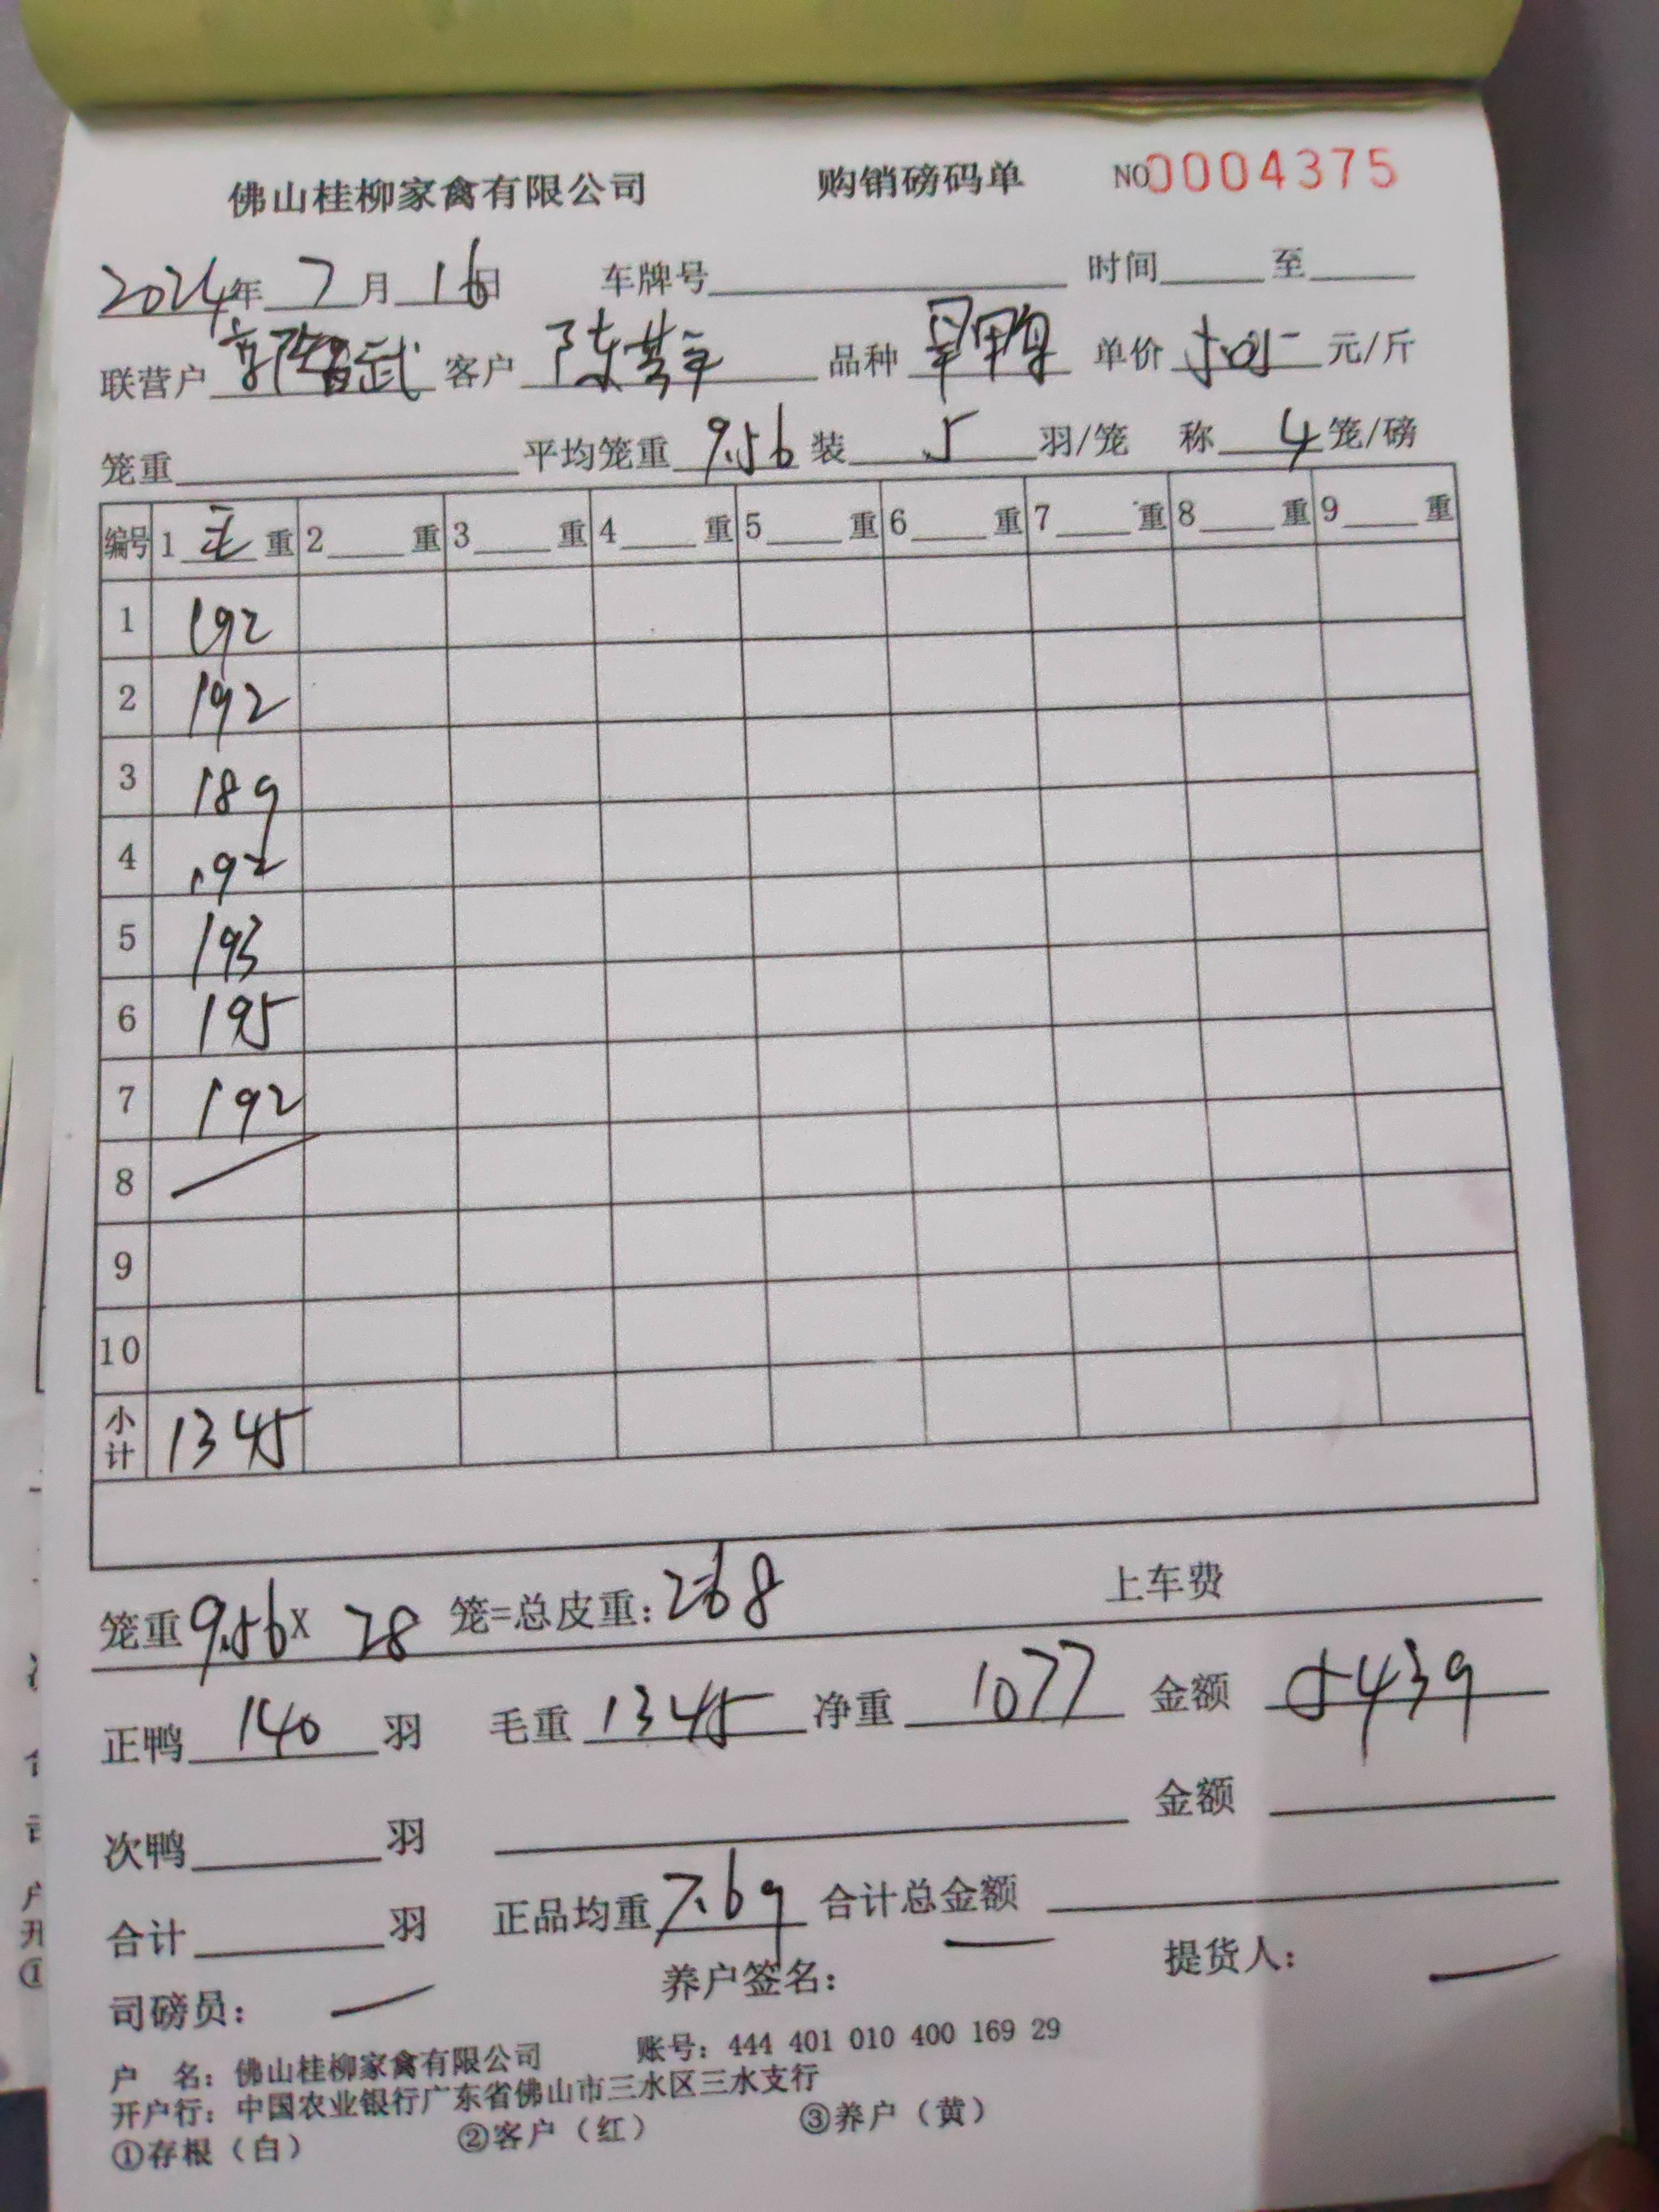 佛山桂柳家禽有限公司 购销磅码单 NO0004375
2024年 7月 16日 车牌号 时间 至
联营户 郭智武 客户 陈 品种 单价 5.05 元/斤
笼重 平均笼重 9.56 装 5 羽/笼 称 4 笼/磅
编号 1 毛 重 2 重 3 重 4 重 5 重 6 重 7 重 8 重 9 重
1 192
2 192
3 189
4 192
5 193
6 195
7 192
8
9
10
小计 1345
笼重 9.56 x 28 笼=总皮重: 268 上车费
正鸭 140 羽 毛重 1345 净重 1077 金额 5439
次鸭 羽 金额
合计 羽 正品均重 7.69 合计总金额
司磅员: 养户签名: 提货人:
户 名: 佛山桂柳家禽有限公司 账号: 444 401 010 400 169 29
开户行: 中国农业银行广东省佛山市三水区三水支行
①存根（白） ②客户（红） ③养户（黄）